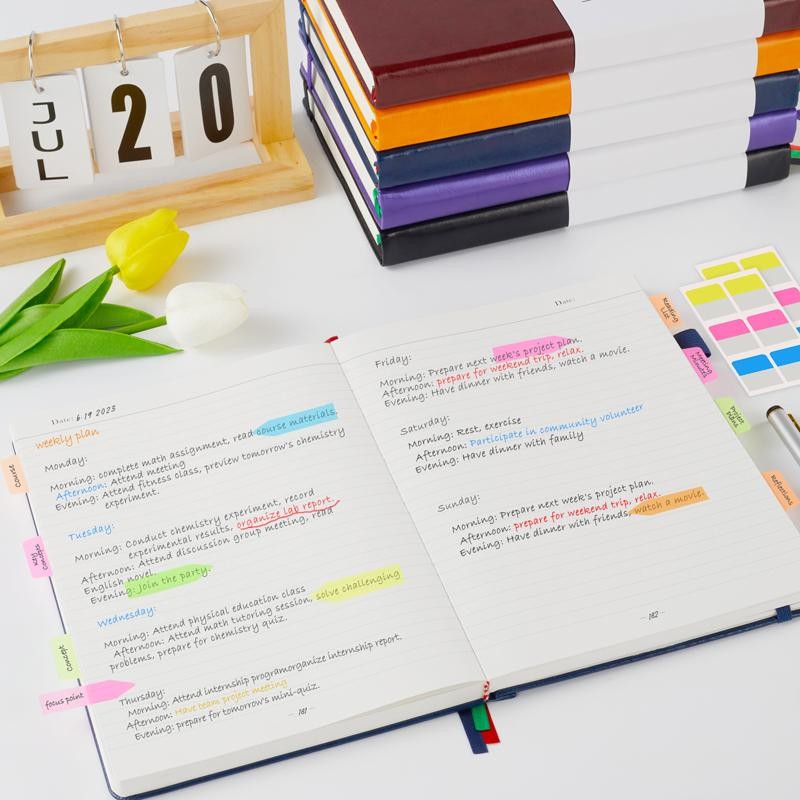 JUL 20
Date: 6.19 2023
weekly plan
Monday:
Morning: complete math assignment, read course materials.
Afternoon: Attend meeting
Evening: Attend fitness class, preview tomorrow's chemistry
experiment.
Tuesday:
Morning: Conduct chemistry experiment, record
experimental results, organize lab report.
Afternoon: Attend discussion group meeting, read
English novel.
Evening: Join the party.
Wednesday:
Morning: Attend physical education class
Afternoon: Attend math tutoring session, solve challenging
problems, prepare for chemistry quiz.
Thursday:
Morning: Attend internship programorganize internship report.
Afternoon: Have team project meeting
Evening: prepare for tomorrow's mini-quiz.
181
Course
Key Concepts
Concept
focus point
Date:
Friday:
Morning: Prepare next week's project plan.
Afternoon: prepare for weekend trip, relax.
Evening: Have dinner with friends, watch a movie.
Saturday:
Morning: Rest, exercise
Afternoon: Participate in community volunteer
Evening: Have dinner with family
Sunday:
Morning: Prepare next week's project plan.
Afternoon: prepare for weekend trip, relax.
Evening: Have dinner with friends, watch a movie.
182
Reading
List
Meeting
Minutes
Project
Plans
Reflections